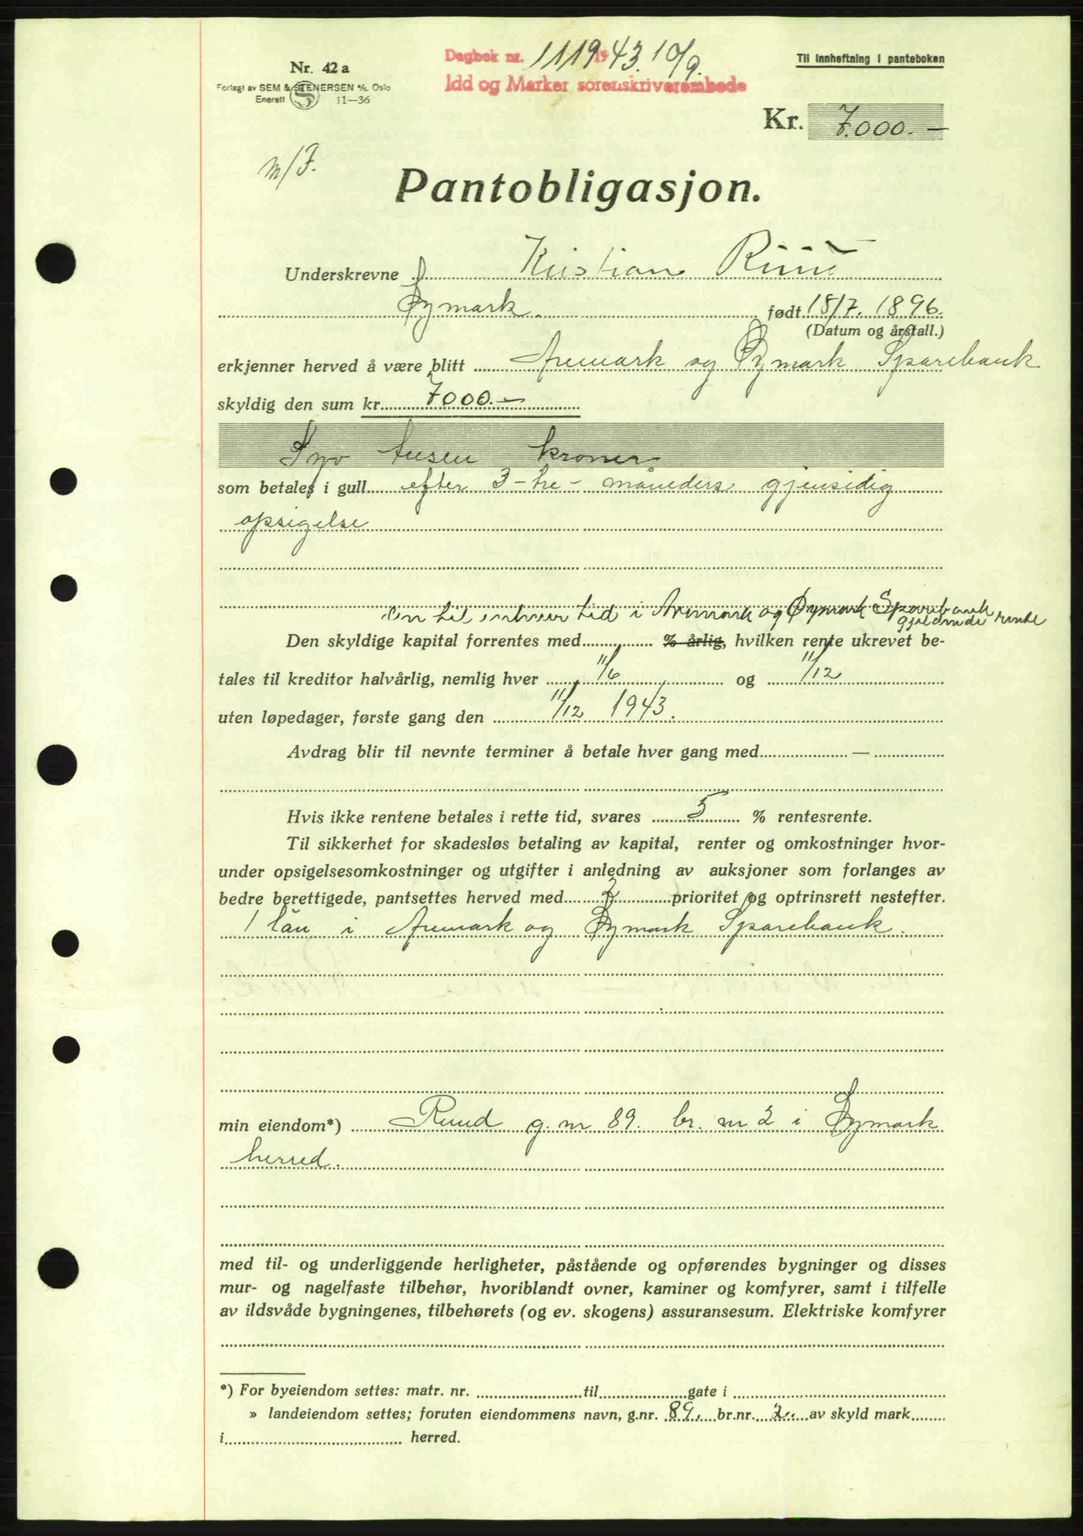 Nr. 42 a
Forlagt av SEM & STENERSEN A/S, Oslo
Enerett S 11—36
Dagbok nr. 1119 1943. 10/9.
Idd og Marker sorenskriverembede
Til innheftning i panteboken
Kr. 7.000.—
m/F.
Pantobligasjon.
Underskrevne Kristian
Øymark. født 18/7. 1896.
(Datum og årstall.)
erkjenner herved å være blitt Aremark og Øymark Sparebank
skyldig den sum kr. 7000.—
Syv tusen kroner
som betales i gull efter 3-tre- måneders gjensidig
opsigelse
den til enhver tid i Aremark og Øymark Sparebank
gjeldende rente
Den skyldige kapital forrentes med % årlig, hvilken rente ukrevet be-
tales til kreditor halvårlig, nemlig hver 11/6 og 11/12
uten løpedager, første gang den 11/12 1943.
Avdrag blir til nevnte terminer å betale hver gang med —
Hvis ikke rentene betales i rette tid, svares 5 % rentesrente.
Til sikkerhet for skadesløs betaling av kapital, renter og omkostninger hvor-
under opsigelsesomkostninger og utgifter i anledning av auksjoner som forlanges av
bedre berettigede, pantsettes herved med 2 prioritet og optrinsrett nestefter.
1 lån i Aremark og Øymark Sparebank.
min eiendom*) Ruud g. nr 89. br. nr 2 i Øymark
herred.
med til- og underliggende herligheter, påstående og opførendes bygninger og disses
mur- og nagelfaste tilbehør, hvoriblandt ovner, kaminer og komfyrer, samt i tilfelle
av ildsvåde bygningenes, tilbehørets (og ev. skogens) assuransesum. Elektriske komfyrer
*) For byeiendom settes: matr. nr. til gate i
» landeiendom settes; foruten eiendommens navn, g.nr. 89. br.nr. 2. av skyld mark
i herred.